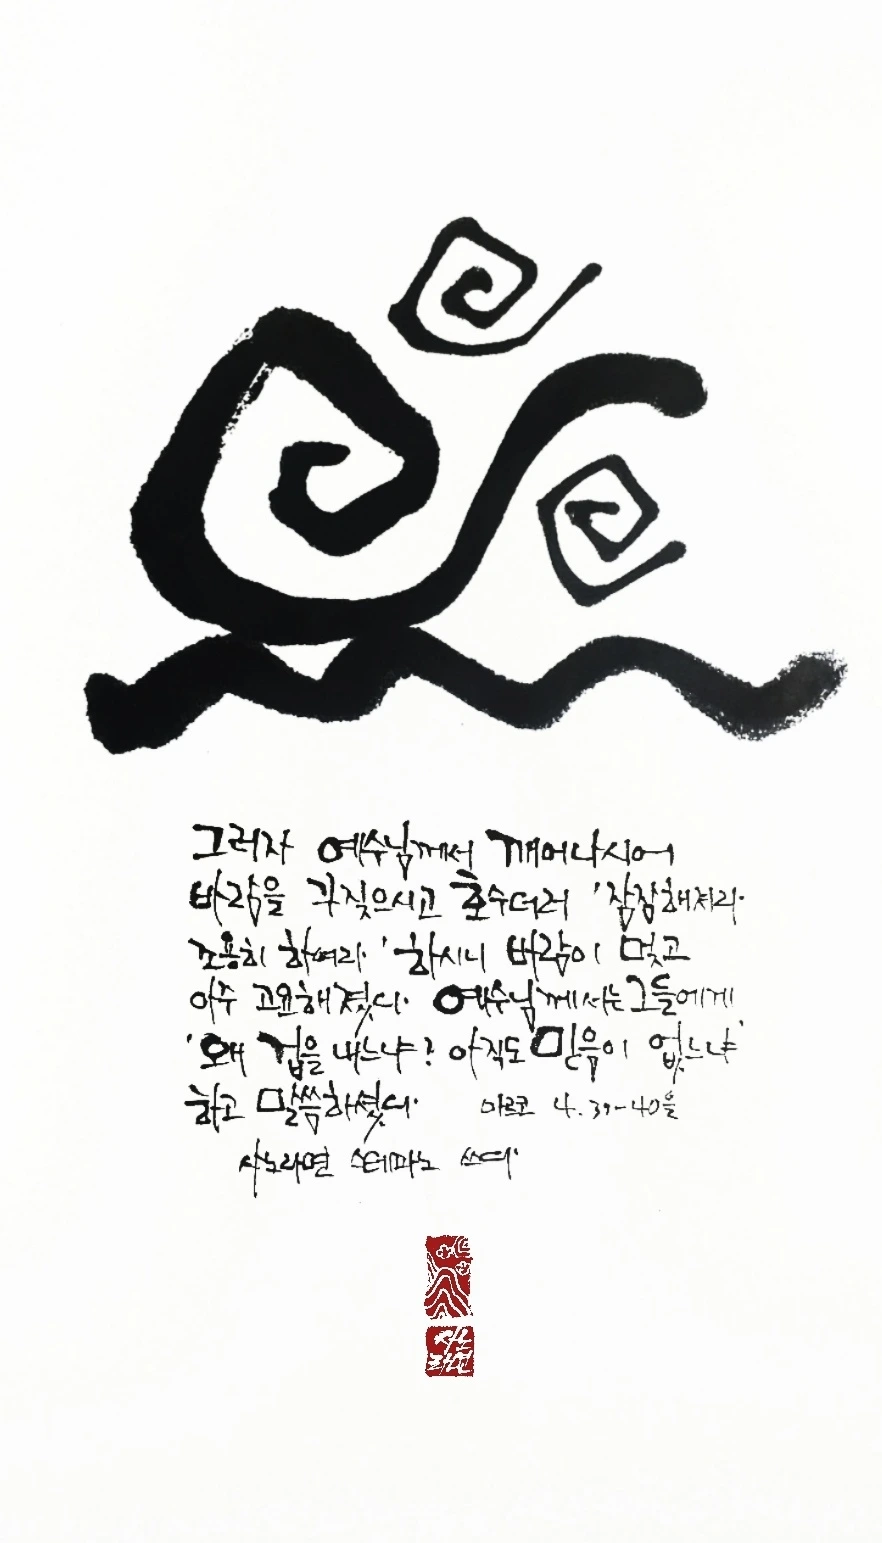 그러자 예수님께서 깨어나시어
바람을 꾸짖으시고 호수더러 '잠잠해져라.
조용히 하여라.' 하시니 바람이 멎고
아주 고요해졌다. 예수님께서는 그들에게
'왜 겁을 내느냐? 아직도 믿음이 없느냐'
하고 말씀하셨다. 마르코 4.39-40을
사노라면 스테파노 쓰다.
사노
라면